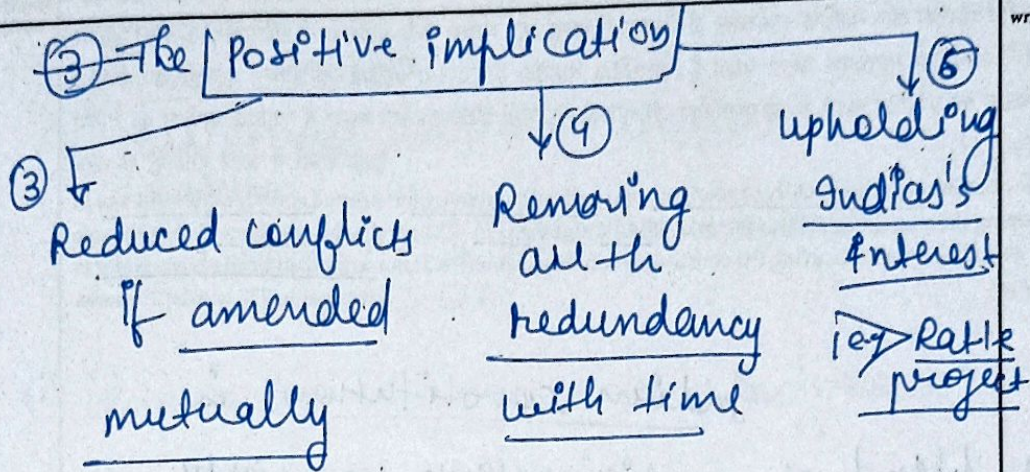 ③ The Positive implication
③
Reduced conflicts
if amended
mutually
④
Removing
all th
redundancy
with time
⑤
upholding
India's
interest
eg> Ratle
project